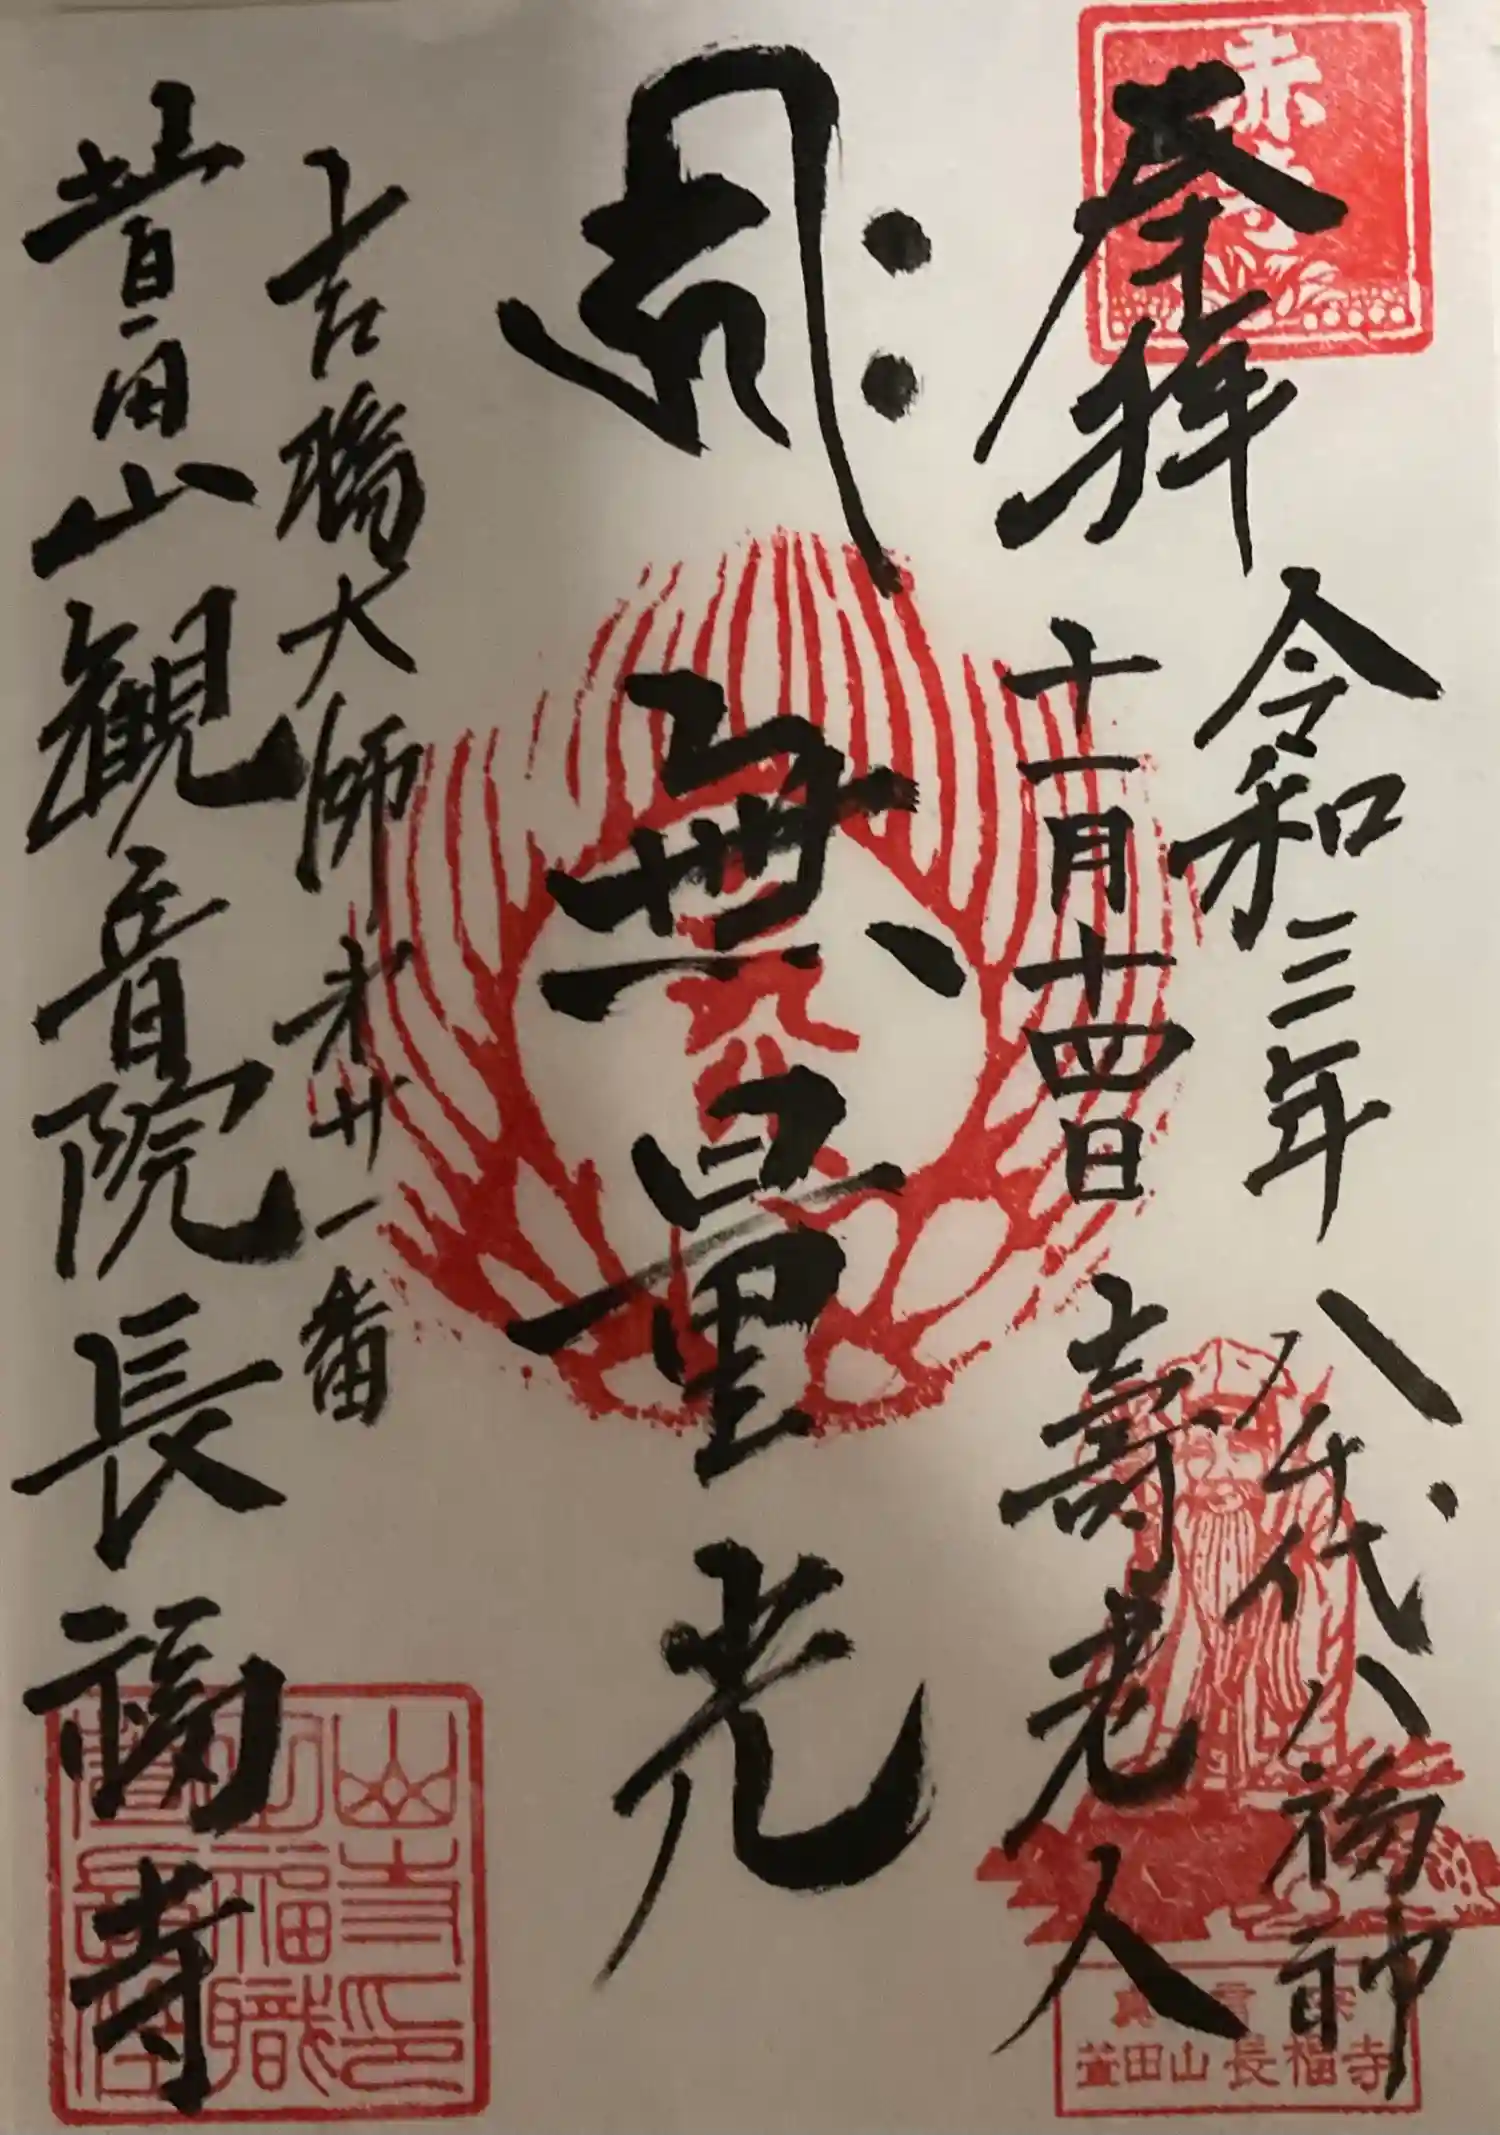 奉拝
令和三年
十一月十四日
八千代八福神
壽老人
無量光
吉橋大師 第廿一番
萱田山 観音院 長福寺
真言宗
萱田山長福寺